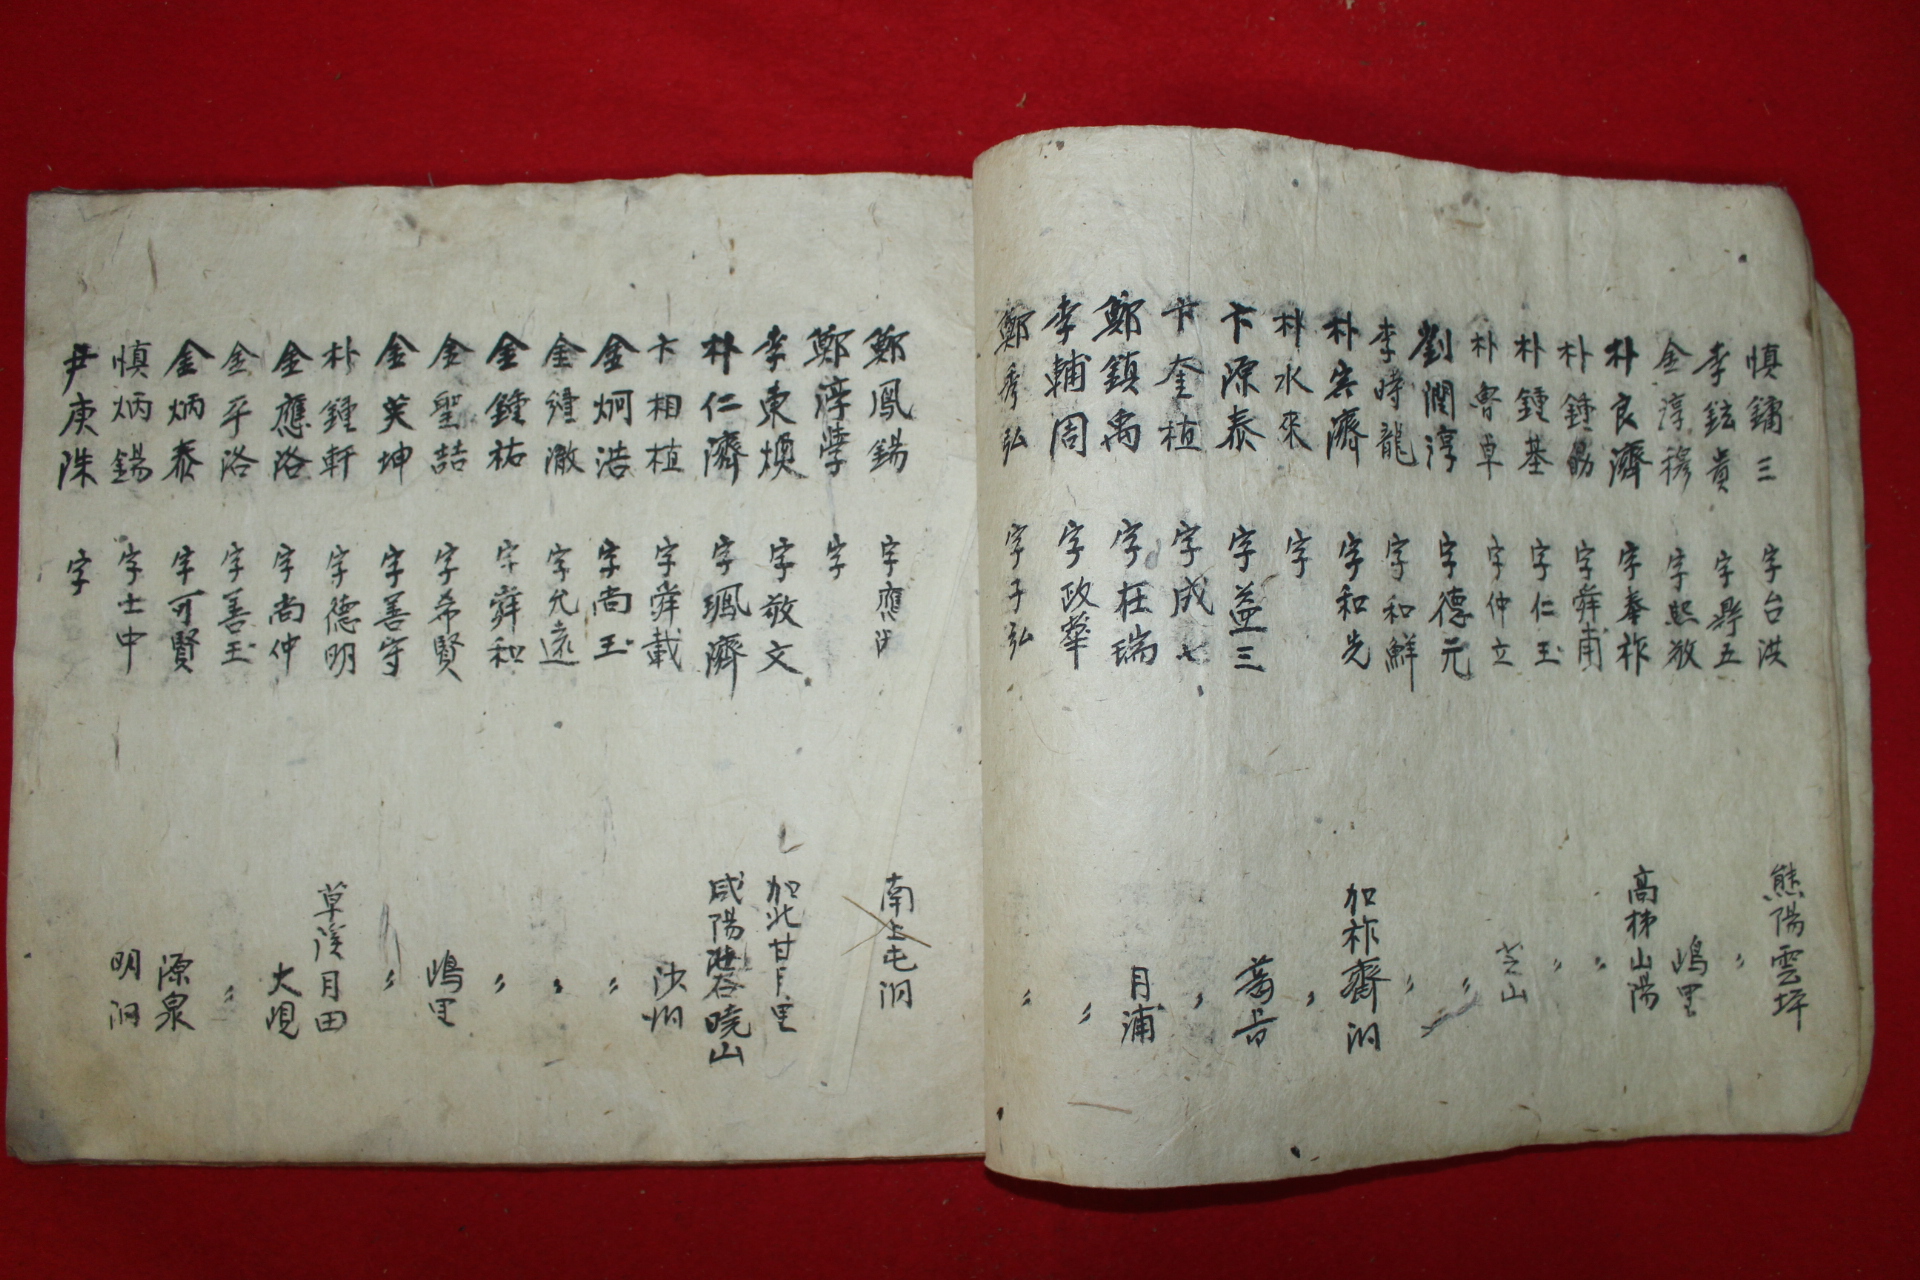 慎鏞三 字台洪 熊陽雲坪
李鉉貴 字鼎五 〃
金淳穆 字熙敬 嶋里
朴良濟 字奉祚 高梯山陽
朴鍾勗 字舜甫 〃
朴鍾基 字仁玉 〃
朴魯草 字仲立 芝山
劉潤淳 字德元 〃
李時龍 字和鮮 〃
朴宏濟 字和先 加祚齊洞
朴永來 字 〃
卞源泰 字益三
卞奎植 字成七 〃
鄭鎮禹 字在瑞 月浦
李輔周 字政華 〃
鄭秀弘 字子弘 〃
鄭鳳錫 字應 南上屯洞
鄭淳 字
李東煥 字敬文 加北甘月里
朴仁濟 字珮濟 咸陽 曉山
卞相植 字舜載 沙洲
金炯浩 字尚玉 〃
金鍾澈 字允遠 〃
金鍾祐 字舜和 〃
金聖喆 字希賢 嶋里
金英坤 字善守 〃
朴鍾軒 字德明 草溪月田
金應洛 字尚仲 大峴
金平洛 字善玉 〃
金炳泰 字可賢 源泉
慎炳錫 字士中 明洞
尹庚洙 字